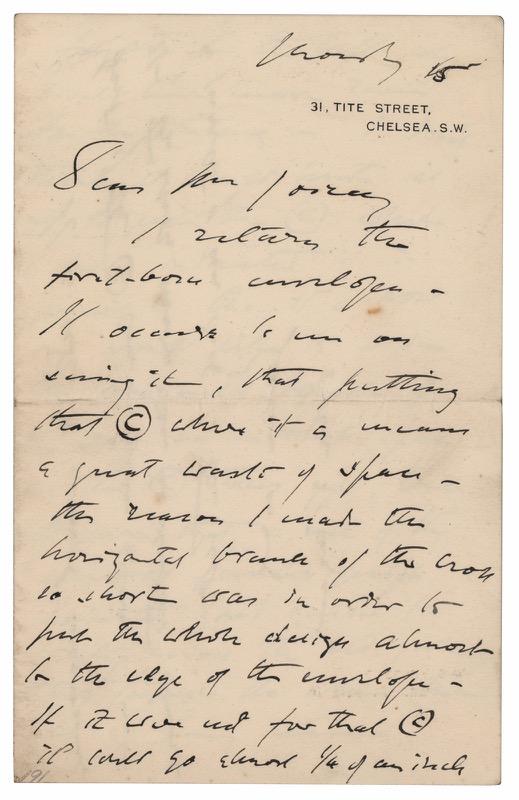 Monday 15
31, TITE STREET,
CHELSEA. S.W.
Dear Mr
I return the
first-born envelope –
It occurs to me on
seeing it, that putting
that © where it is means
a great waste of space –
the reason I made the
horizontal branch of the cross
so short was in order to
push the whole design almost
to the edge of the envelope –
If it were not for that ©
it could go almost 1/4 of an inch
191